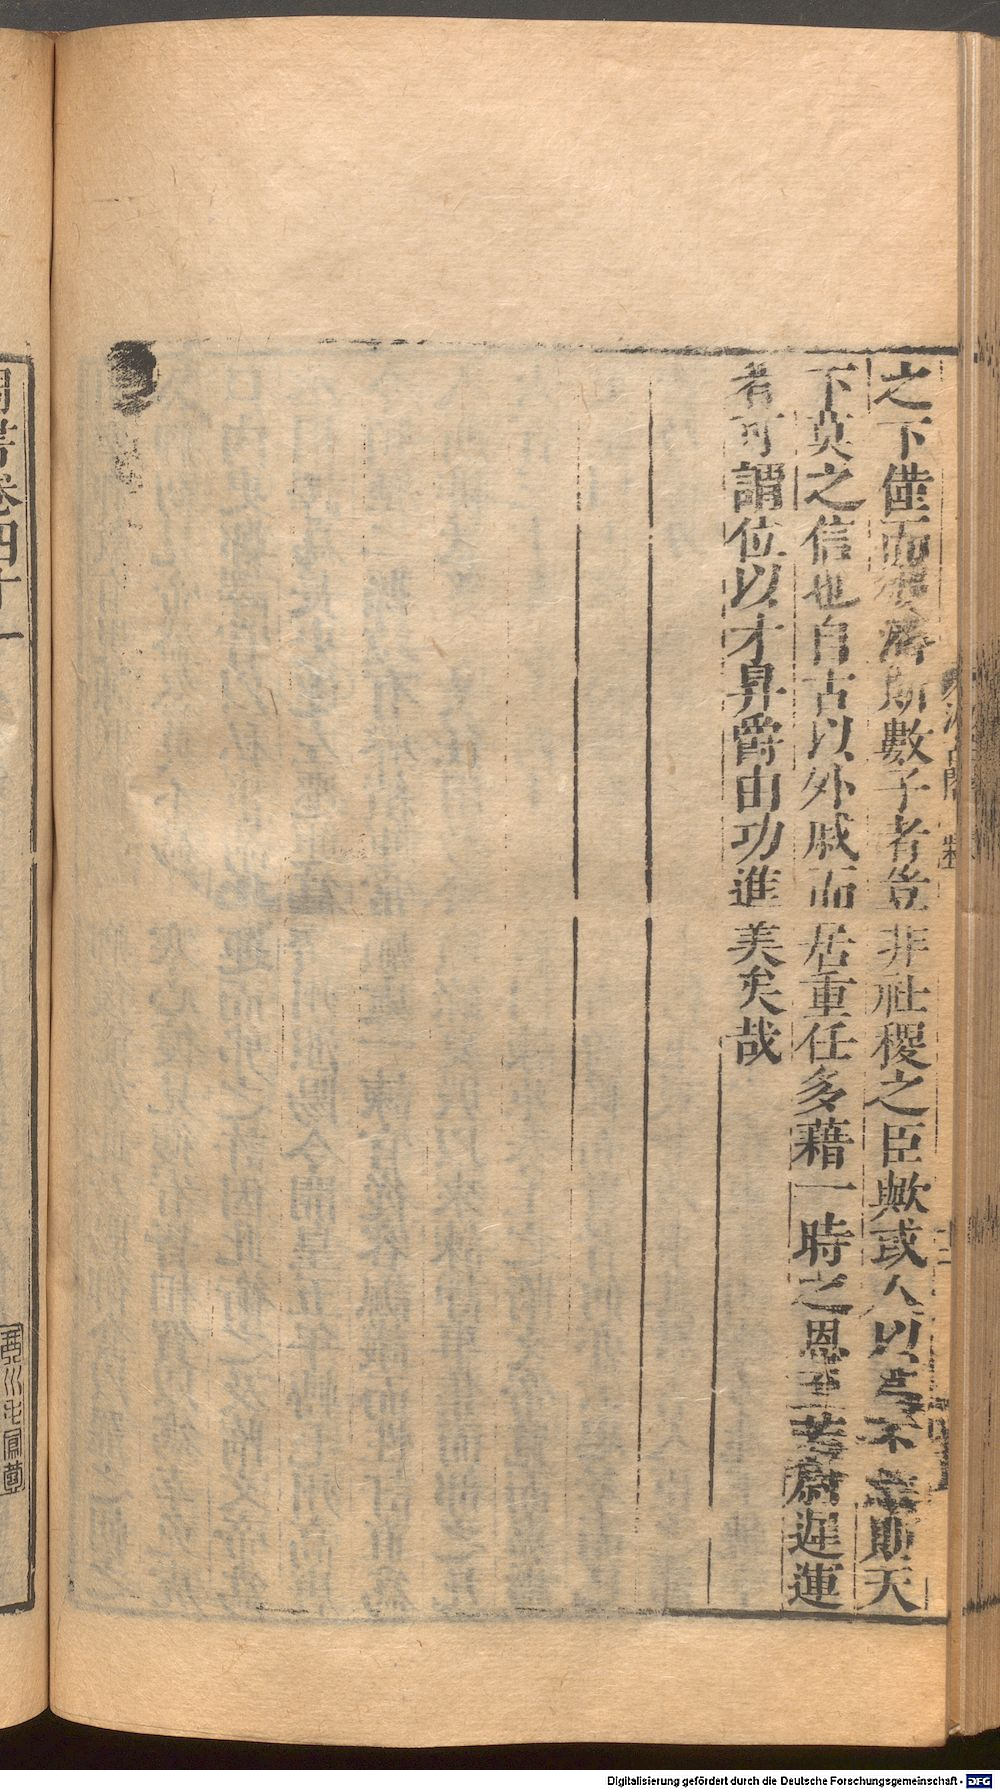 之下僅而獲濟斯數子者豈非社稷之臣歟或人以爲不忠則天
下莫之信也自古以外戚而居重任多藉一時之恩至若尉遲運
者可謂位以才昇爵由功進美矣哉
周書卷四十
Digitalisierung gefördert durch die Deutsche Forschungsgemeinschaft - DFG